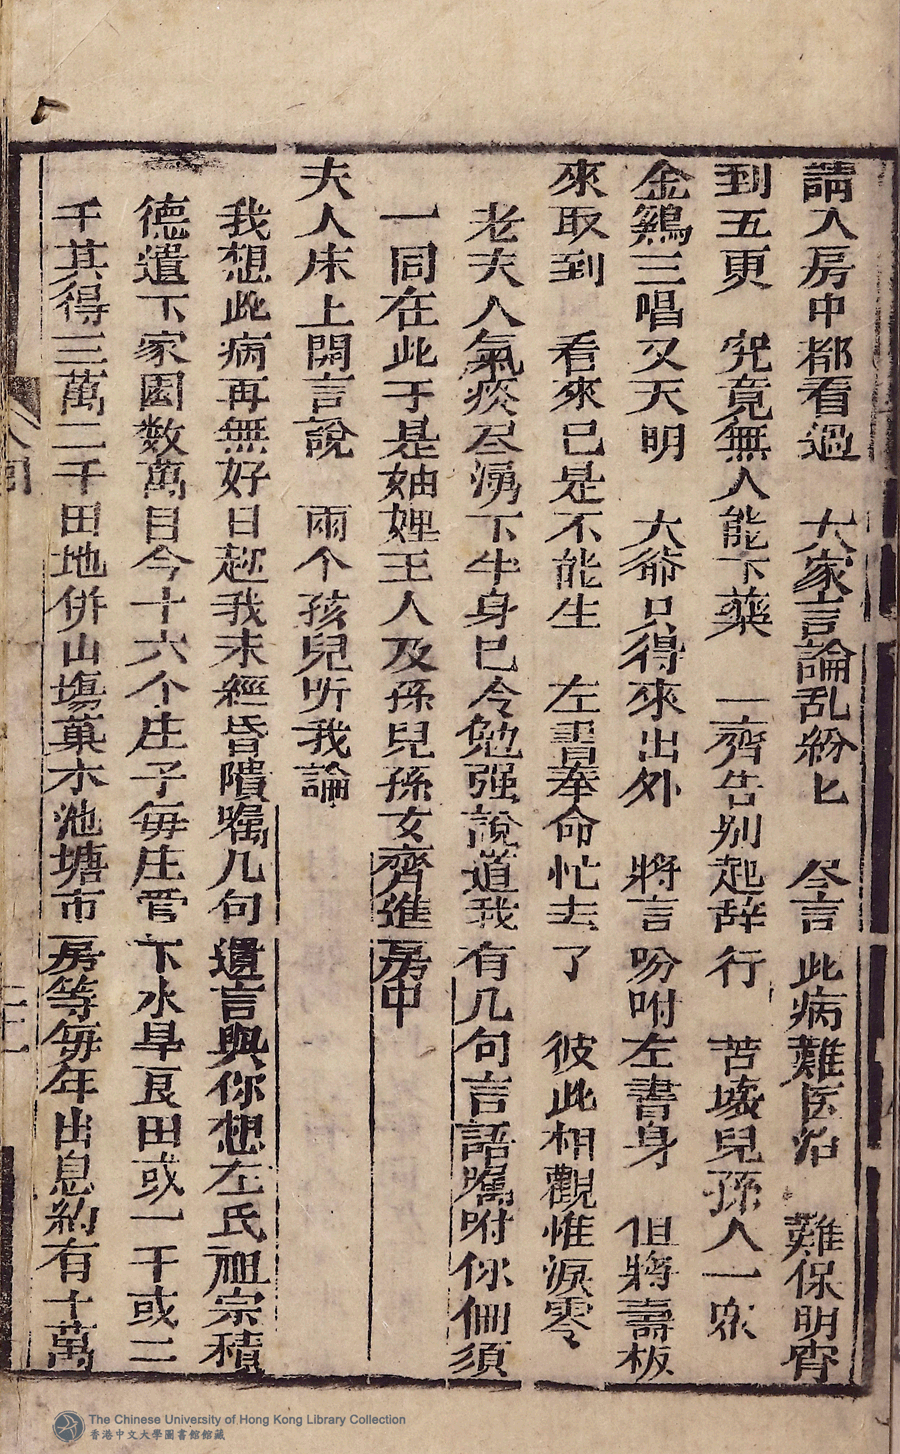 請入房中都看過　大家言論乱紛匕　尽言此病難医治　難保明宵
到五更　究竟無人能下藥　一齊告别起辞行　苦壊兒孫人一眾
金鷄三唱又天明　大爺只得來出外　將言吩咐左書身　但將壽板
來取到　看來已是不能生　左書奉命忙去了　彼此相觀惟淚零
老夫人氣痰尽湧下半身已令勉强說道我有几句言語嘱咐你們須
一同在此于是妯娌五人及孫兒孫女齊進房中
夫人床上開言說　兩个孩兒听我論
我想此病再無好日趂我未經昏隤嘱几句遺言與你想左氏祖宗積
德遺下家園数萬目今十六个庄子每庄管下水旱良田或一千或二
千其得三萬二千田地併山塲菓木池塘市房等每年出息約有十萬
The Chinese University of Hong Kong Library Collection
香港中文大學圖書館館藏